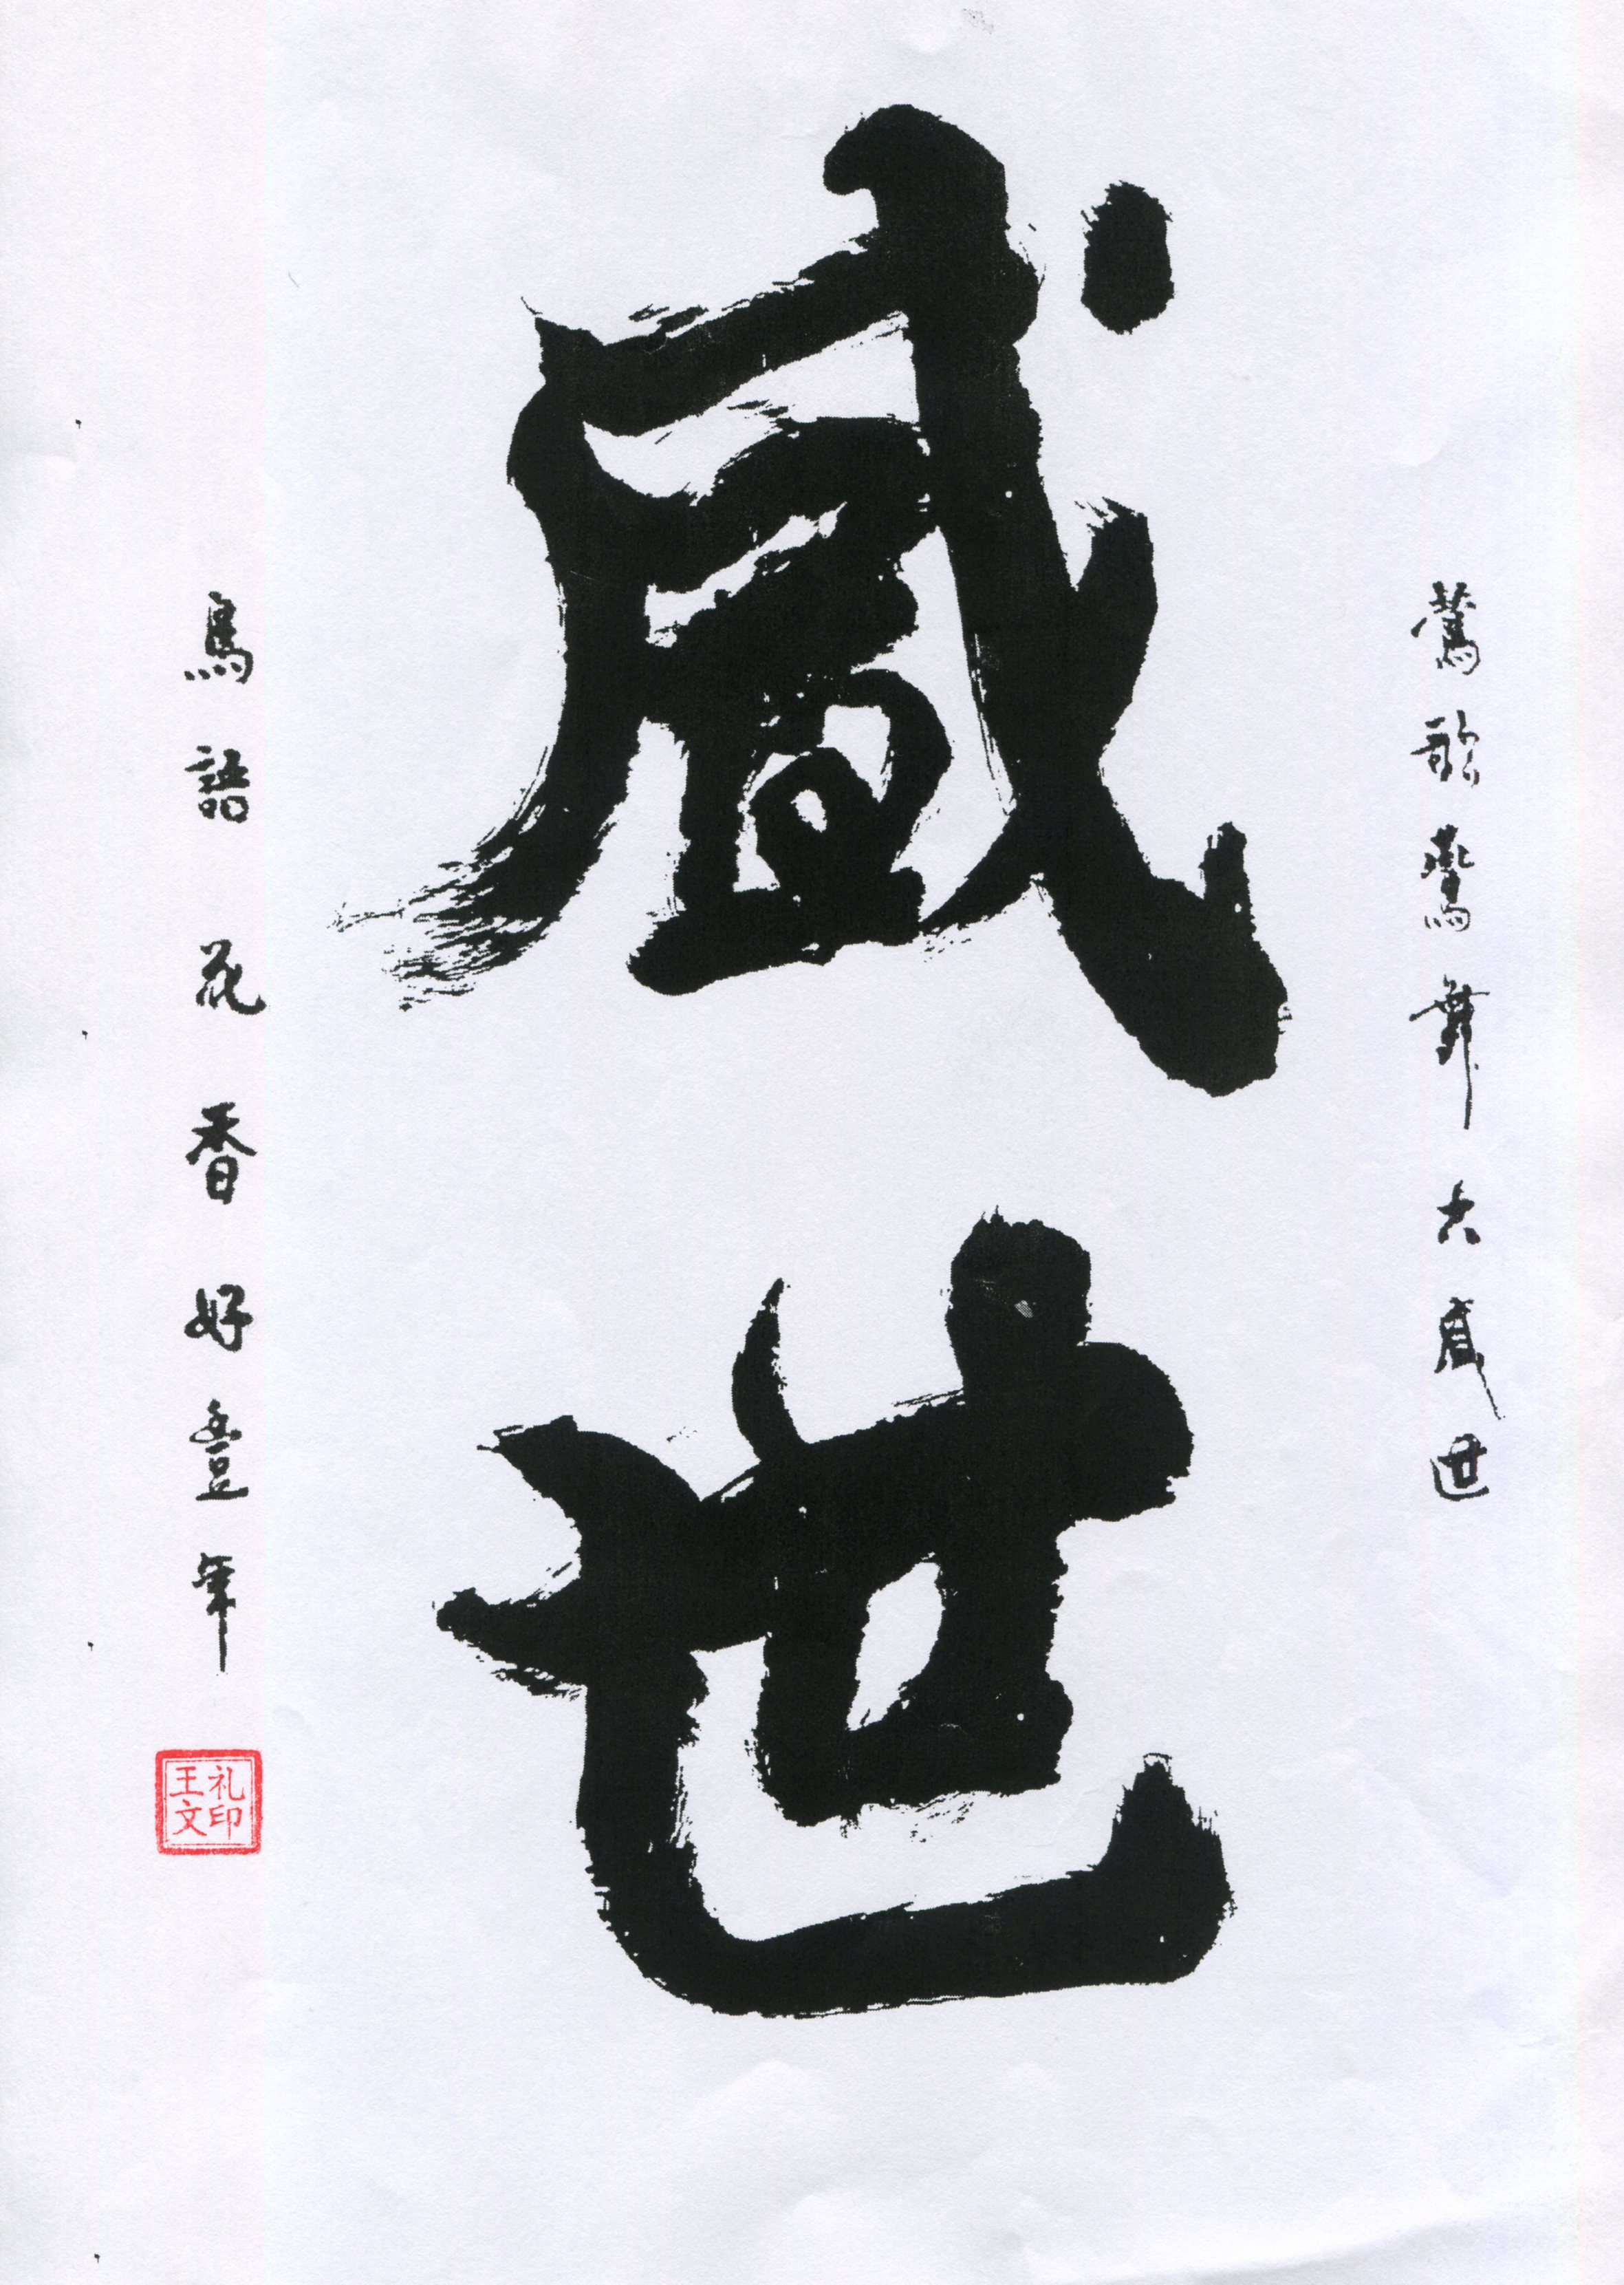 鶯歌鶯舞大盛世
盛世
鳥語花香好豐年
王文礼印